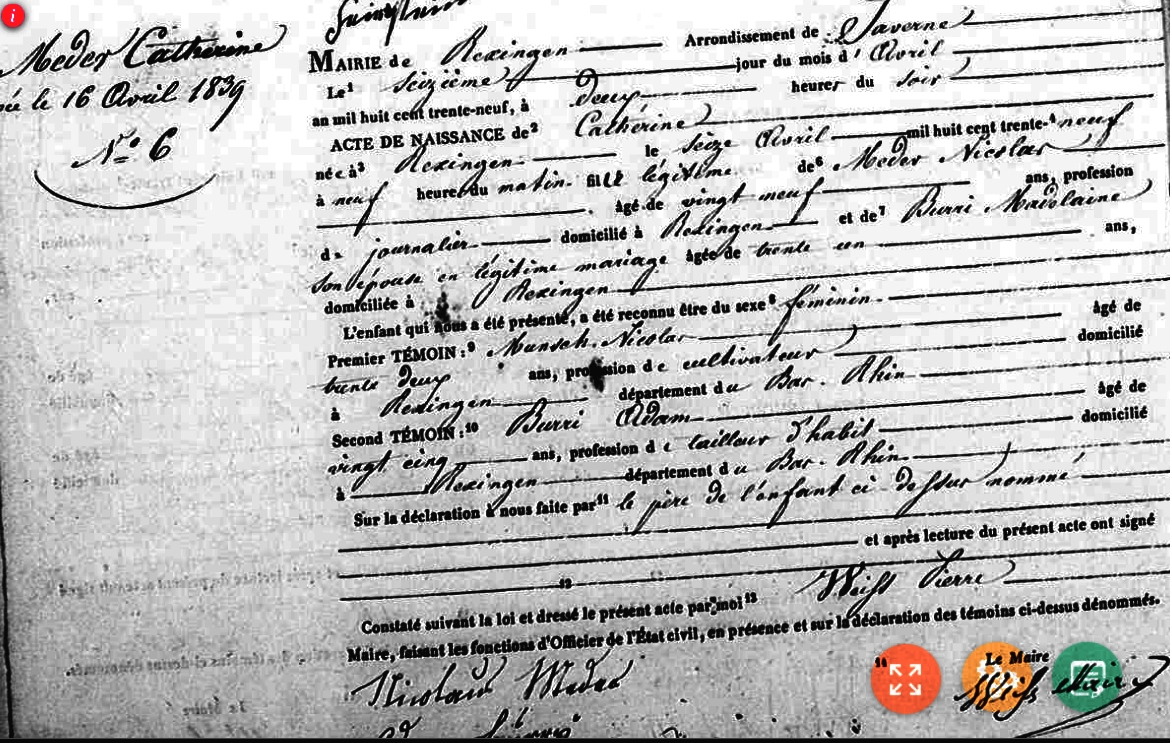 Meder Catherine
née le 16 Avril 1839
N.º 6
MAIRIE de Rexingen Arrondissement de Saverne
Le¹ seizième jour du mois d'Avril
an mil huit cent trente-neuf, à deux heures du soir
ACTE DE NAISSANCE de² Catherine
née à³ Rexingen le seize Avril mil huit cent trente-⁴neuf
à neuf heures du matin fille légitime de⁶ Meder Nicolas
âgé de vingt neuf ans, profession
de journalier domicilié à Rexingen et de⁷ Burri Madelaine
son épouse en légitime mariage âgée de trente un ans,
domiciliée à Rexingen
L'enfant qui nous a été présenté, a été reconnu être du sexe⁸ féminin
Premier TÉMOIN:⁹ Munsch Nicolas âgé de
trente deux ans, profession de cultivateur domicilié
à Rexingen département du Bas-Rhin
Second TÉMOIN:¹⁰ Burri Adam âgé de
vingt cinq ans, profession de tailleur d'habit domicilié
à Rexingen département du Bas-Rhin
Sur la déclaration à nous faite par¹¹ le père de l'enfant ci-dessus nommé
et après lecture du présent acte ont signé
12
Constaté suivant la loi et dressé le présent acte par moi¹³ Weiss Pierre
Maire, faisant les fonctions d'Officier de l'État civil, en présence et sur la déclaration des témoins ci-dessus dénommés.
14 Le Maire
Nicolaus Meder Weiss Maire